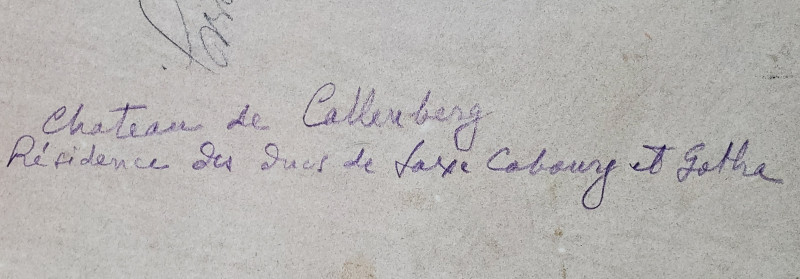 Chateau de Callenberg
Résidence des ducs de Saxe Cobourg et Gotha